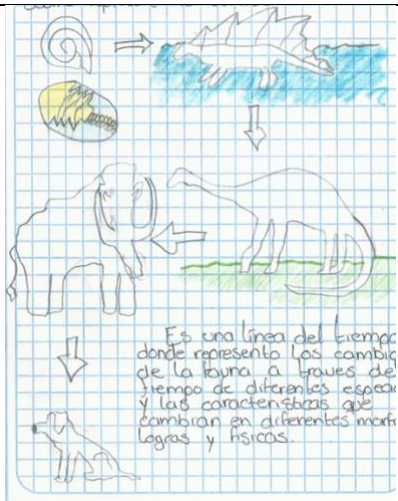 Es una línea del tiempo
donde represento los cambio
de la fauna a traves del
tiempo de diferentes especie
y las caracteristicas que
cambian en diferentes morfo
logias y fisicas.